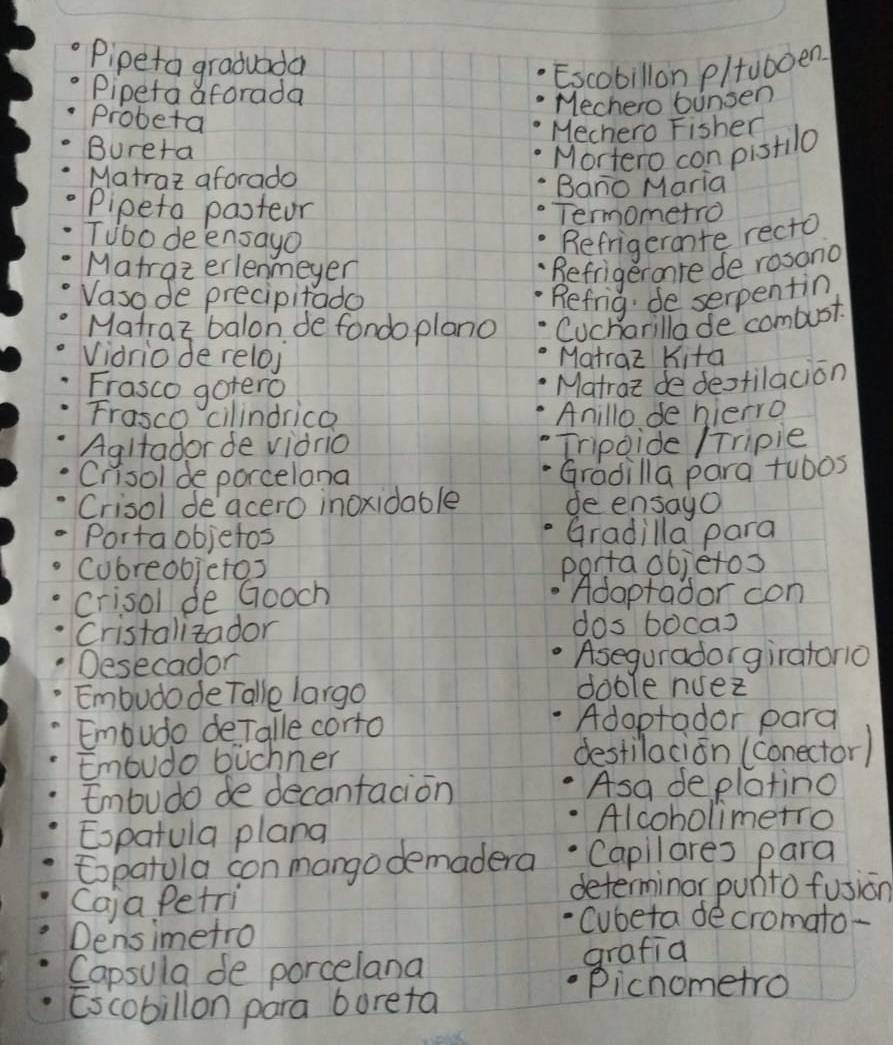 • Pipeta graduada
• Pipeta aforada
• Probeta
• Bureta
• Matraz aforado
• Pipeta pasteur
• Tubo de ensayo
• Matraz erlenmeyer
• Vaso de precipitado
• Matraz balon de fondo plano
• Vidrio de reloj
• Frasco gotero
• Frasco cilindrico
• Agitador de vidrio
• Crisol de porcelana
• Crisol de acero inoxidable
• Porta objetos
• Cubreobjetos
• Crisol de Gooch
• Cristalizador
• Desecador
• Embudo de Talle largo
• Embudo de Talle corto
• Embudo büchner
• Embudo de decantación
• Espatula plana
• Espatula con mango de madera
• Caja Petri
• Densimetro
• Capsula de porcelana
• Escobillon para bureta
• Escobillon p/tuboen.
• Mechero bunsen
• Mechero Fisher
• Mortero con pistilo
• Baño Maria
• Termometro
• Refrigerante recto
• Refrigerante de rosario
• Refrig. de serpentin
• Cucharilla de combust.
• Matraz Kita
• Matraz de destilación
• Anillo de hierro
• Tripoide / Tripie
• Gradilla para tubos
de ensayo
• Gradilla para
porta objetos
• Adaptador con
dos bocas
• Asegurador giratorio
doble nuez
• Adaptador para
destilación (conector)
• Asa de platino
• Alcoholimetro
• Capilares para
determinar punto fusión
• Cubeta de cromato-
grafia
• Picnometro